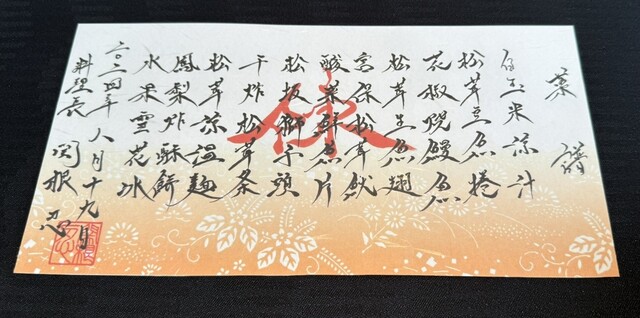 菜譜
玉米涼汁
松茸豆魚捲
花椒 鰻魚
松茸生魚翅
宮保松茸
酸菜鮮魚片
松坂獅子頭
干炸松茸条
松茸涼温麺
鳳梨炸酥餅
水果雪花冰
二〇二四年八月十九日
料理長 関根